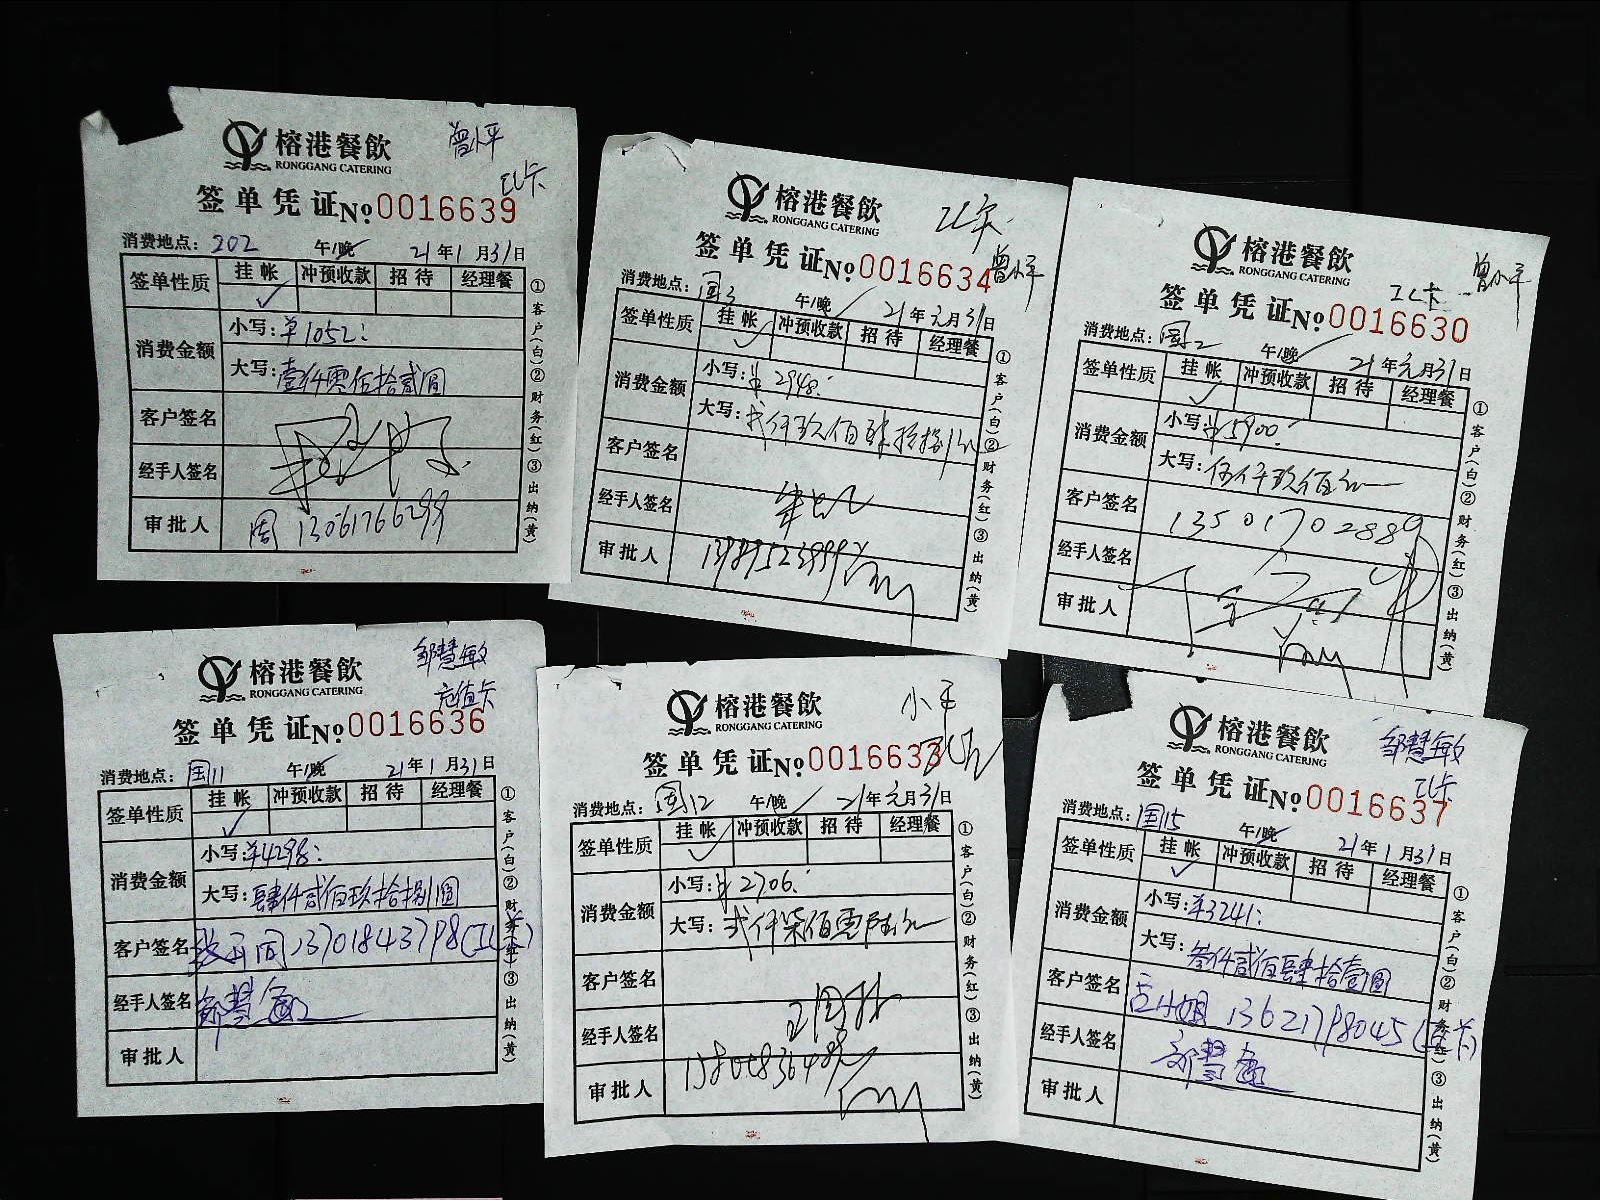 榕港餐飲
RONGGANG CATERING
曾小平
签单凭证№0016639
消费地点：202 午/晚 21年1月31日
签单性质 挂帐 冲预收款 招待 经理餐
✓
消费金额
小写：单1052：
大写：壹仟零佰拾贰圆
客户签名
经手人签名
审批人 周 13061766299
①客户(白)②财务(红)③出纳(黄)
榕港餐飲
RONGGANG CATERING
曾小平
签单凭证№0016634
消费地点：国3 午/晚 21年元月31日
签单性质 挂帐 冲预收款 招待 经理餐
✓
消费金额
小写：2948：
大写：贰仟玖佰肆拾捌元
客户签名
经手人签名
审批人
①客户(白)②财务(红)③出纳(黄)
榕港餐飲
RONGGANG CATERING
曾小平
签单凭证№0016630
消费地点：国2 午/晚 21年元月31日
签单性质 挂帐 冲预收款 招待 经理餐
✓
消费金额
小写：5900：
大写：伍仟玖佰元
客户签名 13501702889
经手人签名
审批人
①客户(白)②财务(红)③出纳(黄)
榕港餐飲
RONGGANG CATERING
邹慧敏
充值卡
签单凭证№0016636
消费地点：国11 午/晚 21年1月31日
签单性质 挂帐 冲预收款 招待 经理餐
✓
消费金额
小写：单4298：
大写：肆仟贰佰玖拾捌圆
客户签名 13701843798
经手人签名 邹慧敏
审批人
①客户(白)②财务(红)③出纳(黄)
榕港餐飲
RONGGANG CATERING
小平
签单凭证№0016633
消费地点：国12 午/晚 21年元月31日
签单性质 挂帐 冲预收款 招待 经理餐
✓
消费金额
小写：2706：
大写：贰仟柒佰零陆元
客户签名
经手人签名
审批人
①客户(白)②财务(红)③出纳(黄)
榕港餐飲
RONGGANG CATERING
邹慧敏
签单凭证№0016637
消费地点：国15 午/晚 21年1月31日
签单性质 挂帐 冲预收款 招待 经理餐
✓
消费金额
小写：单3241：
大写：叁仟贰佰肆拾壹圆
客户签名 小姐 13621798045
经手人签名 邹慧敏
审批人
①客户(白)②财务(红)③出纳(黄)